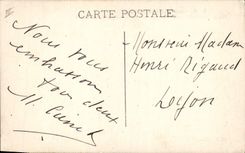 CARTE POSTALE
Nous vous
embrassons
tous deux
M.
Monsieur Madame
Henri Rigaud
Dijon